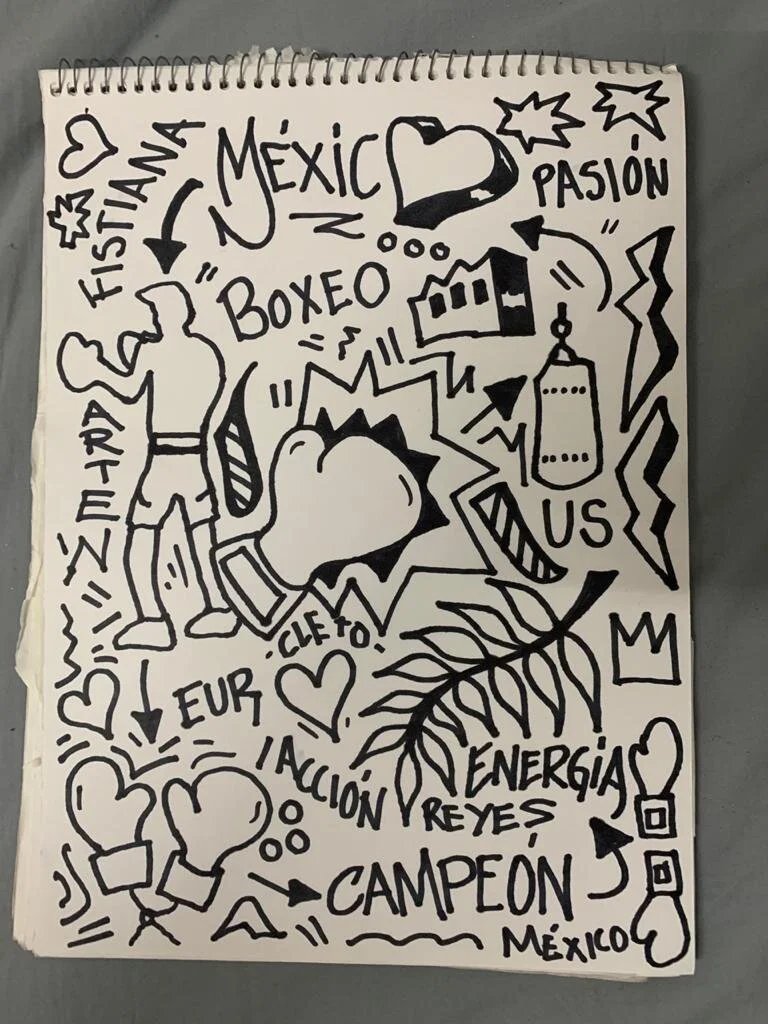 FISTIANA
MÉXIC
PASIÓN
BOXEO
ARTE
N
US
CLETO
EUR
ACCIÓN
ENERGÍA
REYES
CAMPEÓN
MÉXICO